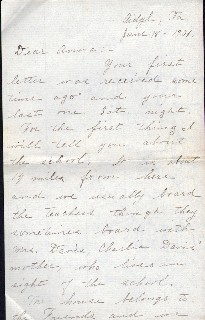 June 18 - 1921.
Dear Anna: -
Your first
letter was received some
time ago and your
last one Sat. night.
For the first thing I
will tell you about
the school. It is about
miles from here
and we usually board
the teachers though they
sometimes board with
Mrs. Davis, Charlie Davis'
mother, who lives in
sight of the school.
The house belongs to
the Friends and we